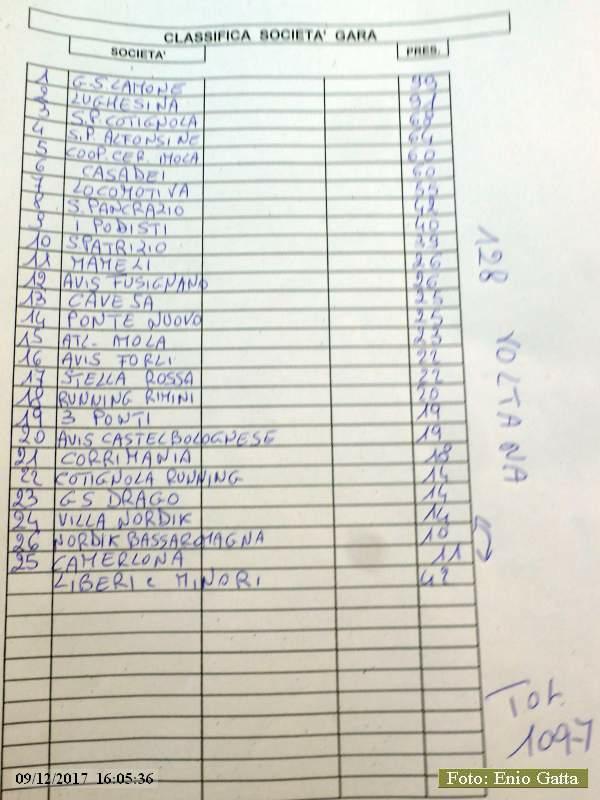 CLASSIFICA SOCIETA' GARA
SOCIETA' PRES.
1 G.S. LAMONE 99
2 LUGHESINA 91
3 S.P. COTIGNOLA 68
4 S.P. ALFONSINE 64
5 COOP. CER. IMOLA 60
6 CASADEI 60
7 LOCOMOTIVA
8 S. PANCRAZIO 42
9 I PODISTI 40
10 S PATRIZIO 39
11 MAMELI 26
12 AVIS FUSIGNANO 26
13 CAVESA 25
14 PONTE NUOVO 25
15 ATL. MOLA 23
16 AVIS FORLI 22
17 STELLA ROSSA 22
18 RUNNING RIMINI 20
19 3 PONTI 19
20 AVIS CASTELBOLOGNESE 19
21 CORRIMANIA 18
22 COTIGNOLA RUNNING 14
23 GS DRAGO 14
24 VILLA NORDIK 14
26 NORDIK BASSAROMAGNA 10
25 CAMERLONA 11
LIBERI e MINORI 42
128 VOLTANA
Tot.
1097
09/12/2017 16:05:36
Foto: Enio Gatta